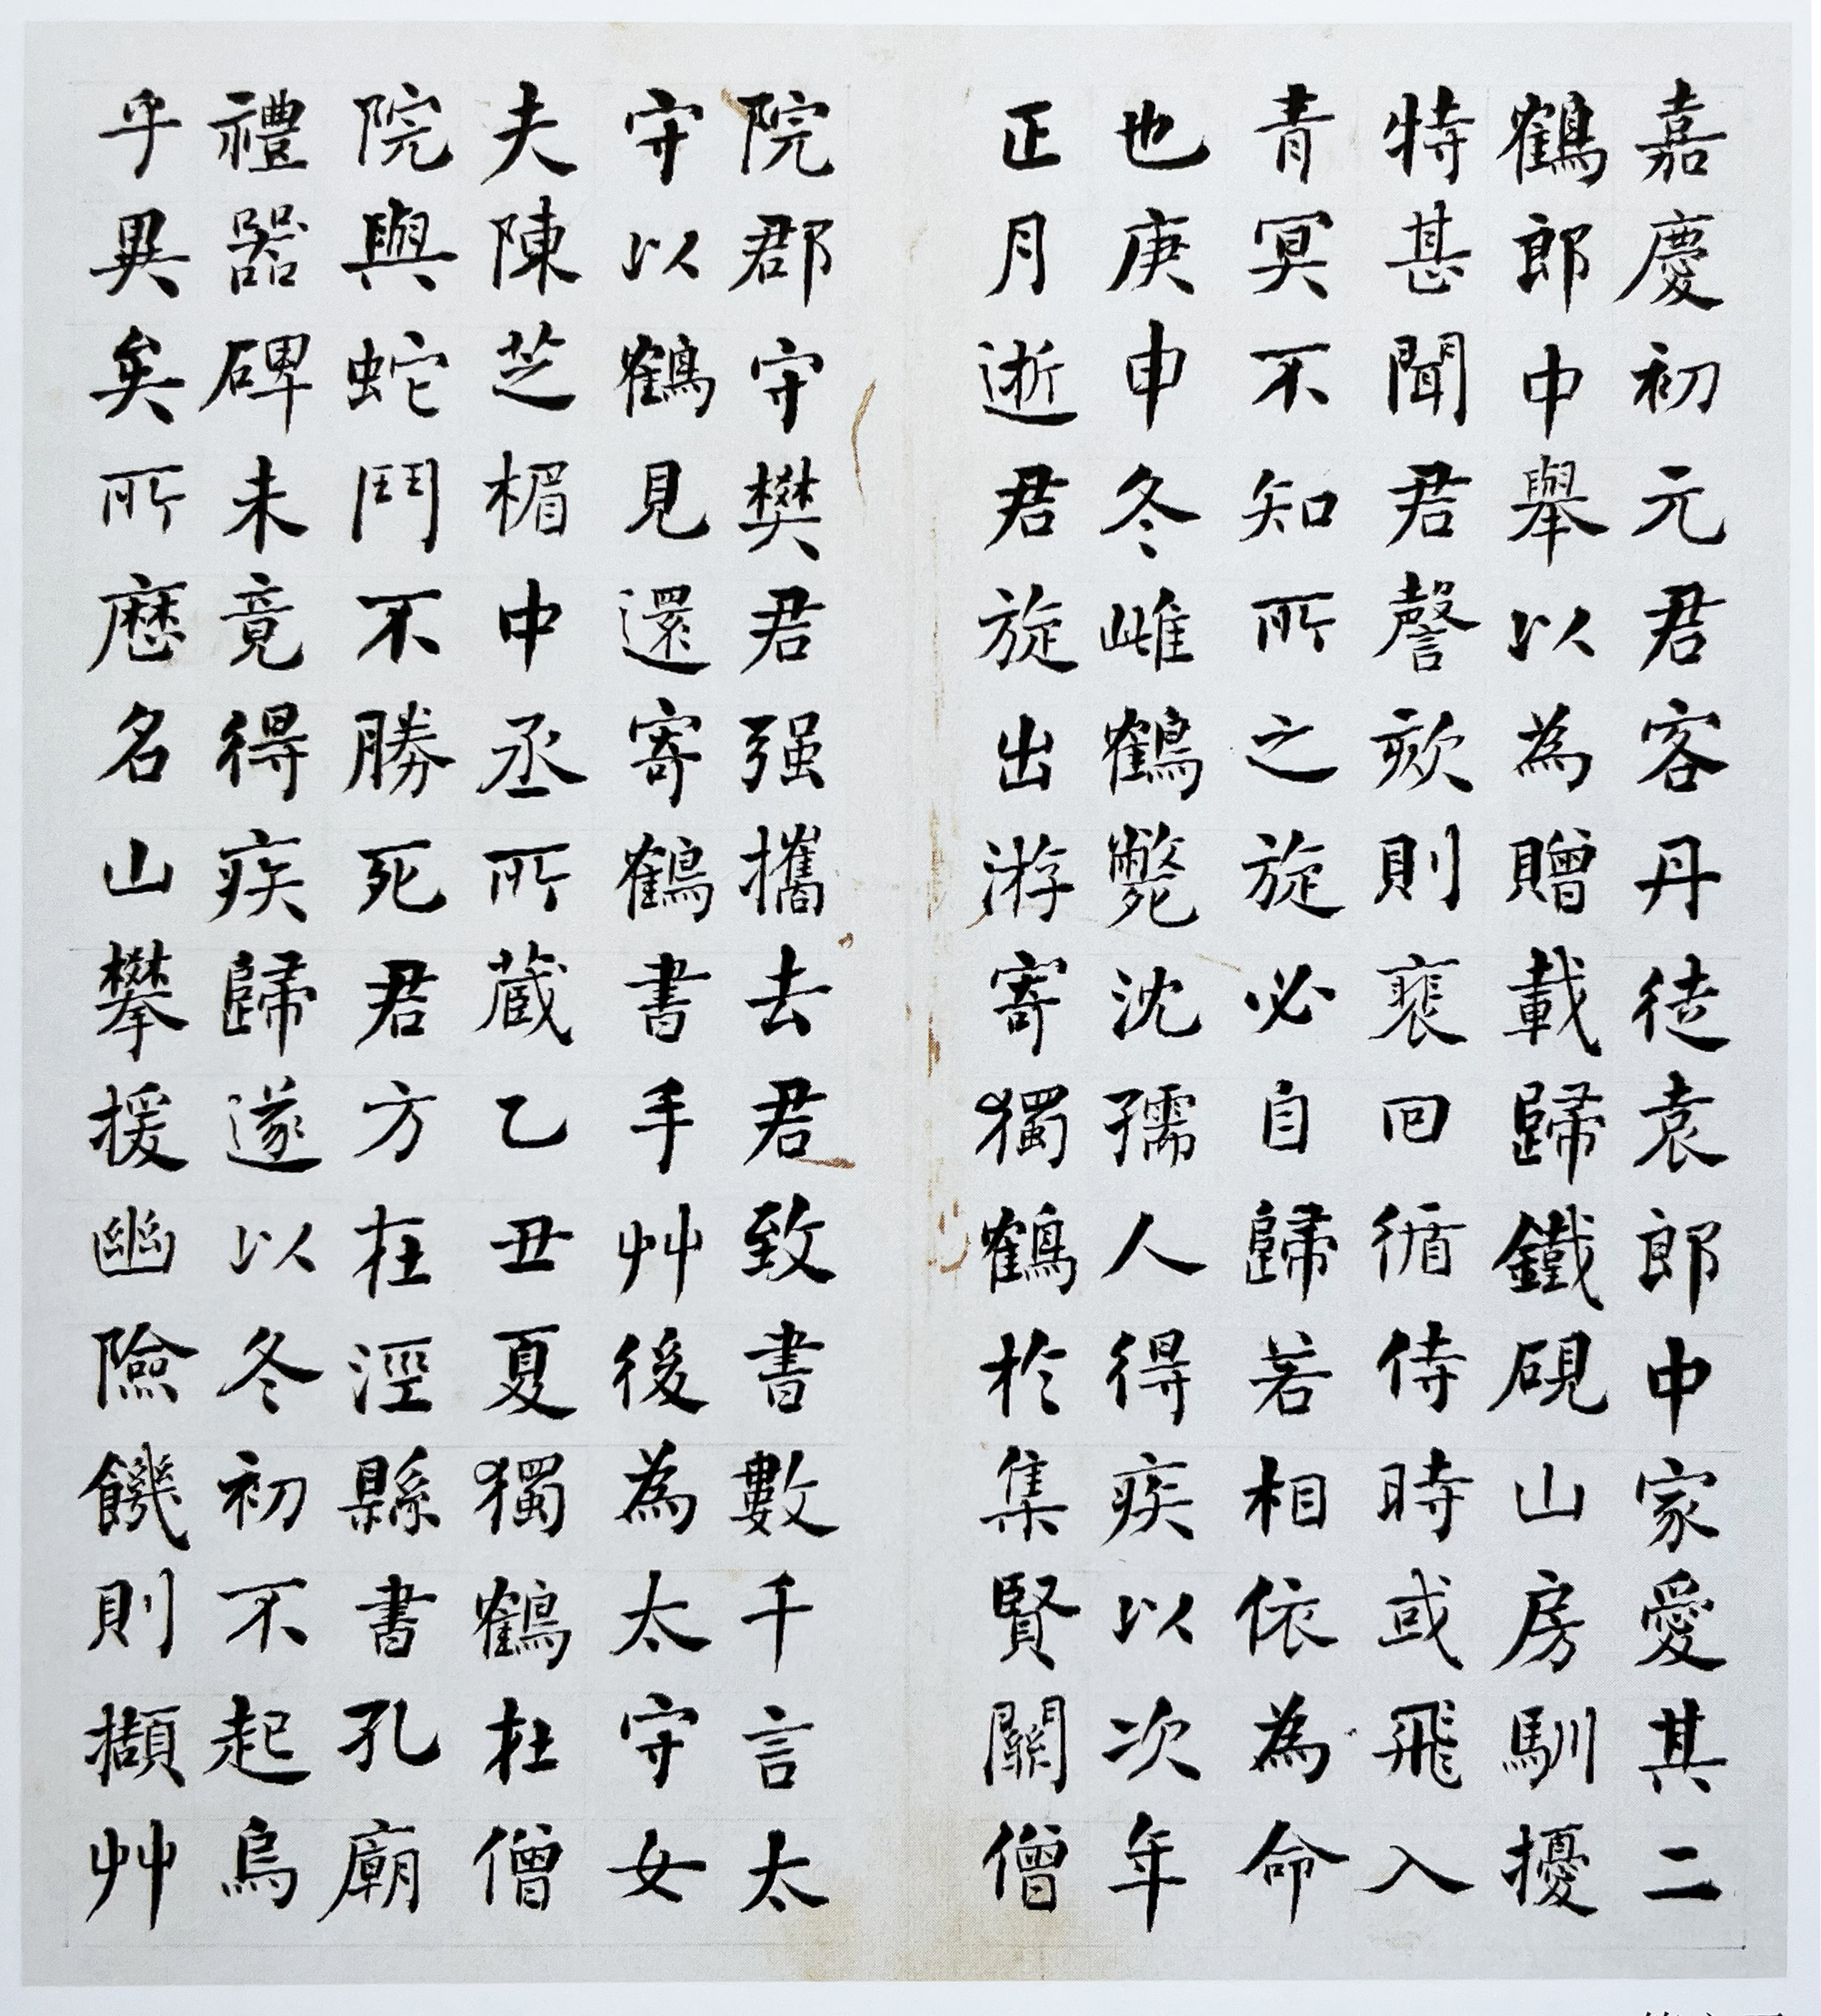 嘉慶初元君客丹徒袁郎中家愛其二
鶴郎中舉以為贈載歸鐵硯山房馴擾
特甚聞君謦欬則裵回循侍時或飛入
青冥不知所之旋必自歸若相依為命
也庚申冬雌鶴斃沈孺人得疾以次年
正月逝君旋出游寄獨鶴於集賢關僧
院郡守樊君强攜去君致書數千言太
守以鶴見還寄鶴書手艸後為太守女
夫陳芝楣中丞所蔵乙丑夏獨鶴在僧
院與蛇鬥不勝死君方在涇縣書孔廟
禮器碑未竟得疾歸遂以冬初不起烏
乎異矣所歷名山攀援幽險饑則擷艸